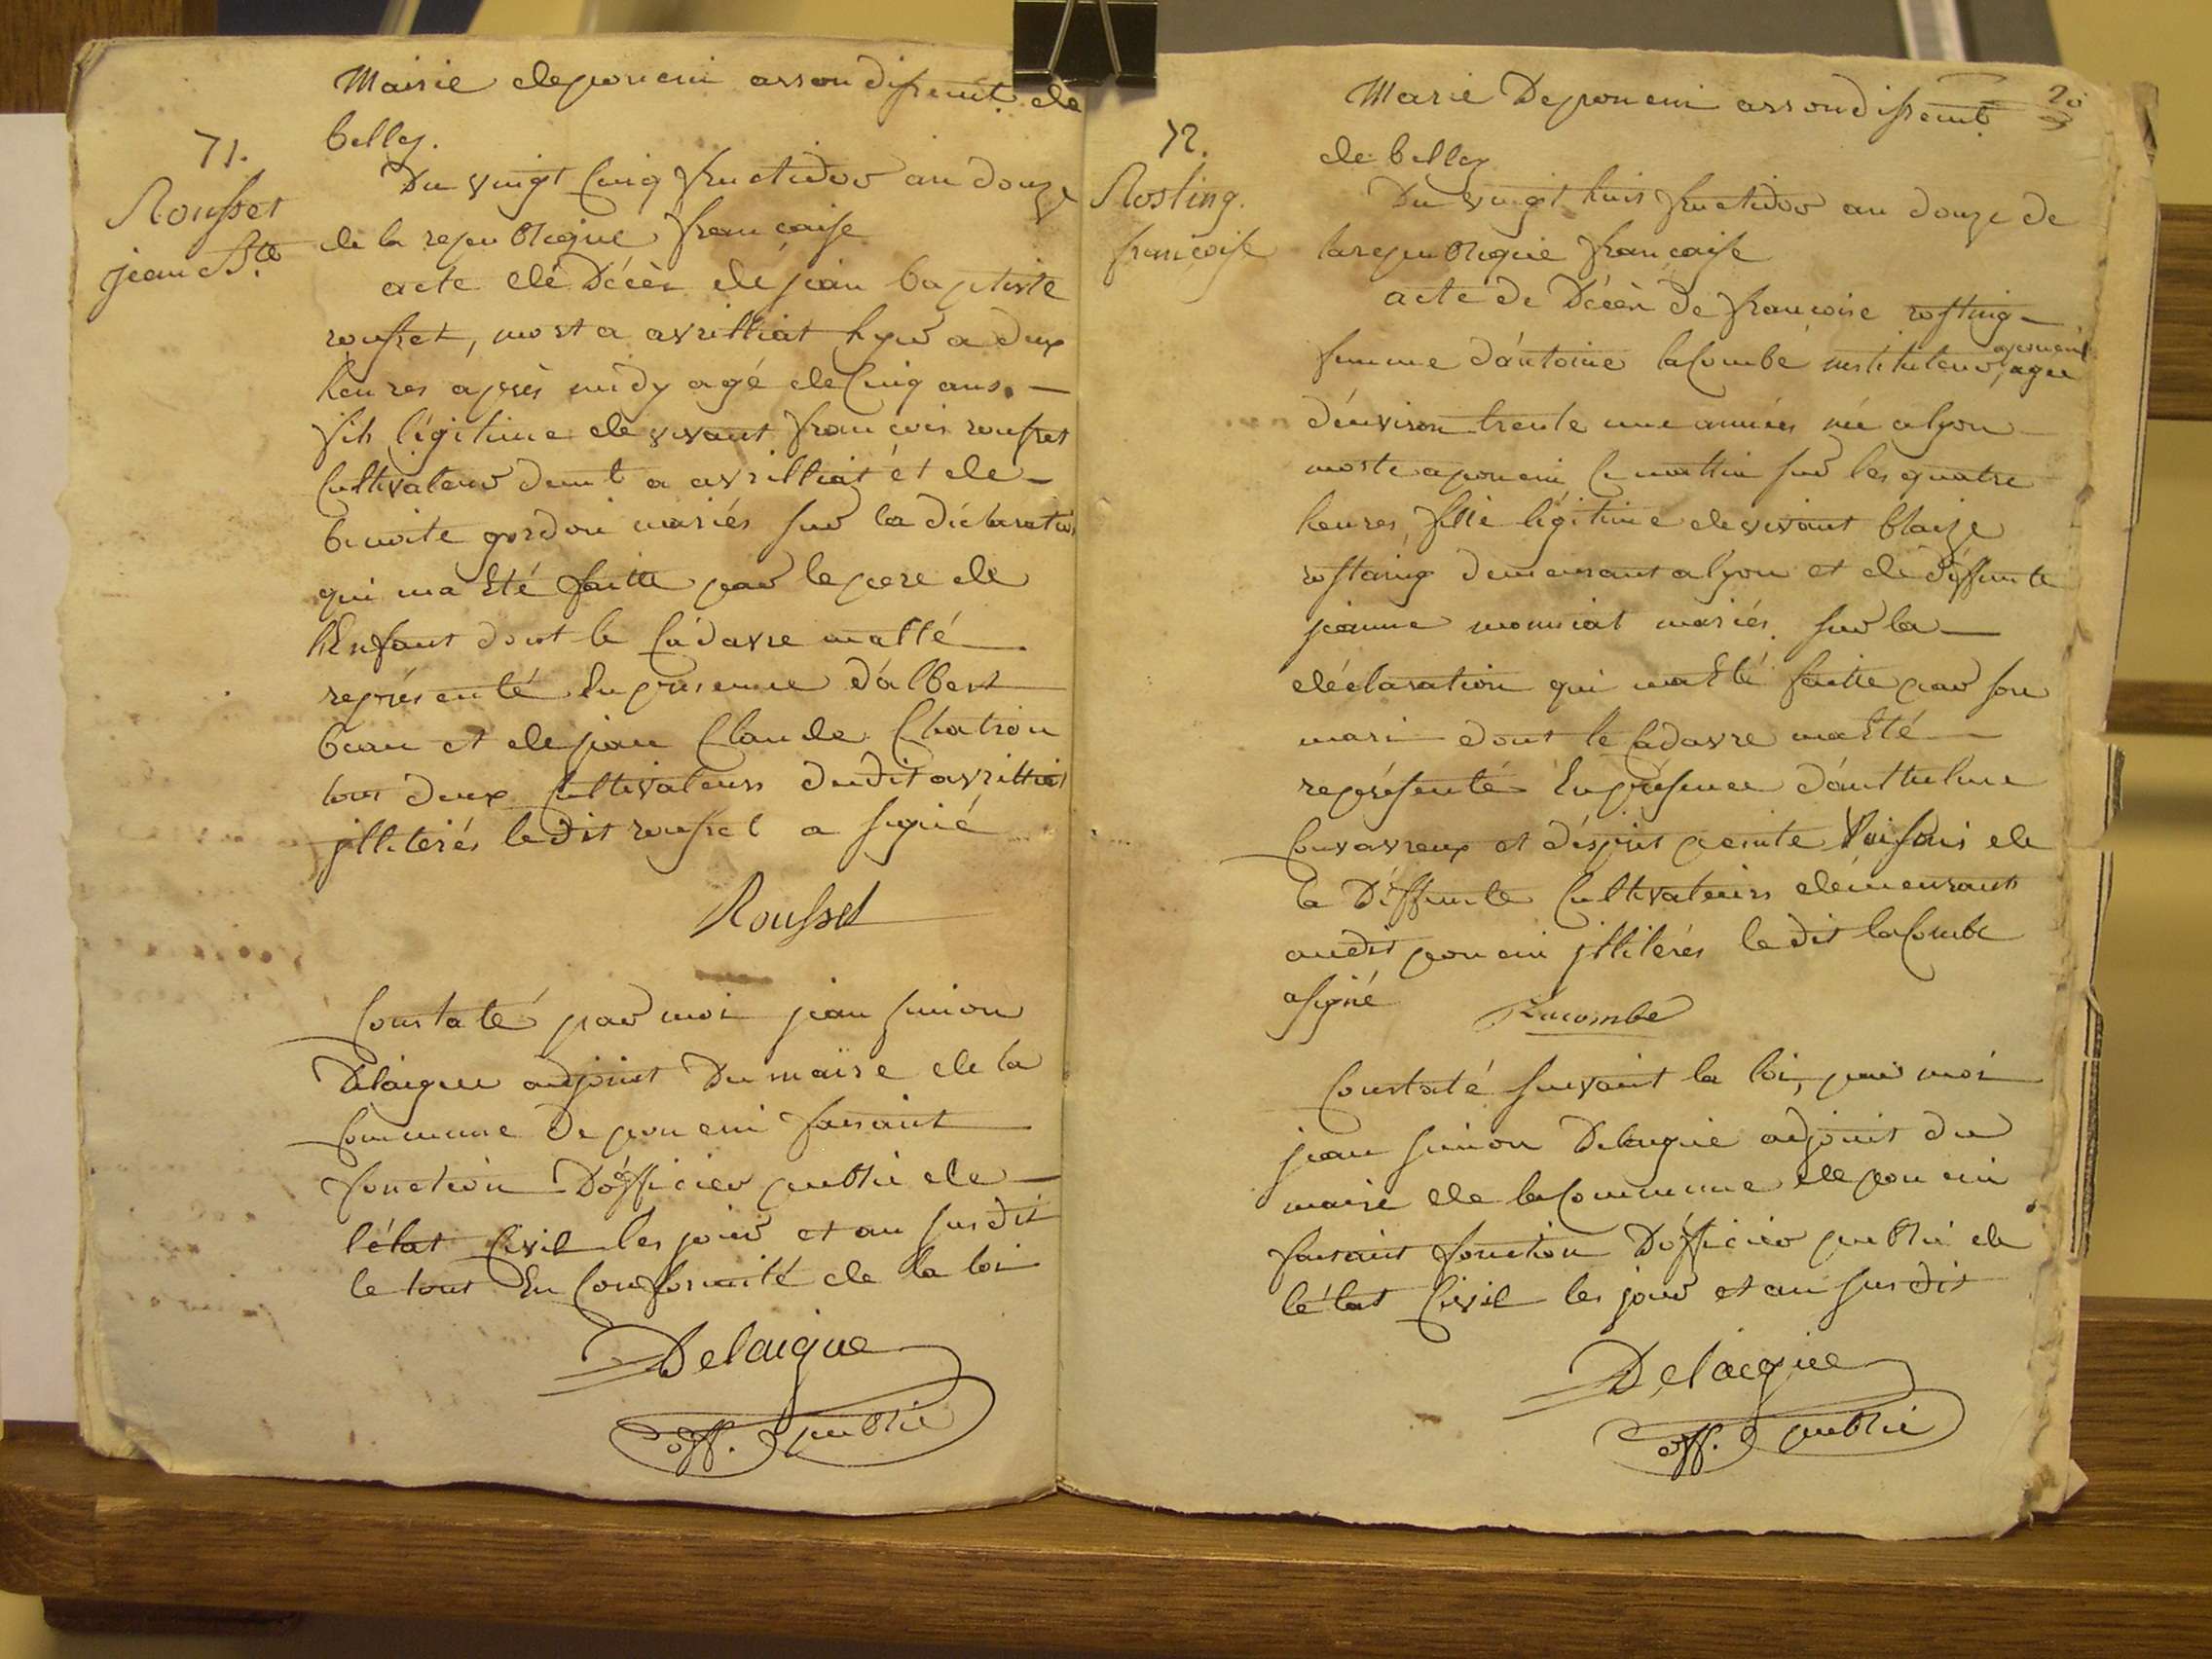 Mairie deponcin arrondissemt. de
belley.
71.
Rousset
jean Bte
Du vingt Cinq fructidor an douze
de la republique francaise
acte de Décès de jean baptiste
rousset, mort a avrilliat hyer a deux
heures après midy agé de Cinq ans. —
fils légitime de vivant francois rousset
Cultivateur demt a avrilliat et de —
benoite gordon mariés sur la déclaration
qui ma Eté faitte par le pere de
lEnfant dont le Cadavre ma Eté
représenté En présence d'albert
beau et de jean Claude Chatron
tous deux Cultivateurs dudit avrilliat
jlliterés ledit rousset a signé
Rousset
Constaté par moi jean simon
Delaigue adjoint Du maire de la
Commune De poncin faisant
fonction D'officier public de —
l'état Civil les jour et an susdit
le tout En Conformité de la loi
Delaigue
off. public
20
Marie Deponcin arrondissemt
de belley
72.
Rosting.
françoise
Du vingt huit fructidor an douze de
larepublique francaise
acte de Décès de francoise rosting —
femme d'antoine laCombe instituteur, aponcin agée
d'environ trente une années née alyon
morte aponcin Ce mattin sur les quatre
heures, fille légitime devivant blaize
rostaing demeurant alyon et de déffunte
jeanne monniat mariés. sur la —
déclaration qui ma Eté faitte par son
mari dont le Cadavre ma Eté —
représenté En présence d'anthelme
Couvavreux et d'esprit peinte Voisins de
la Déffunte Cultivateurs demeurants
audit poncin jlliterés ledit laCombe
asigné
Lacombe
Constaté suivant la loi, par moi
jean simon Delaigue adjoint du
maire de laCommune de poncin
faisant fonction D'officier public de
l'état Civil les jour et an susdit
Delaigue
off. public